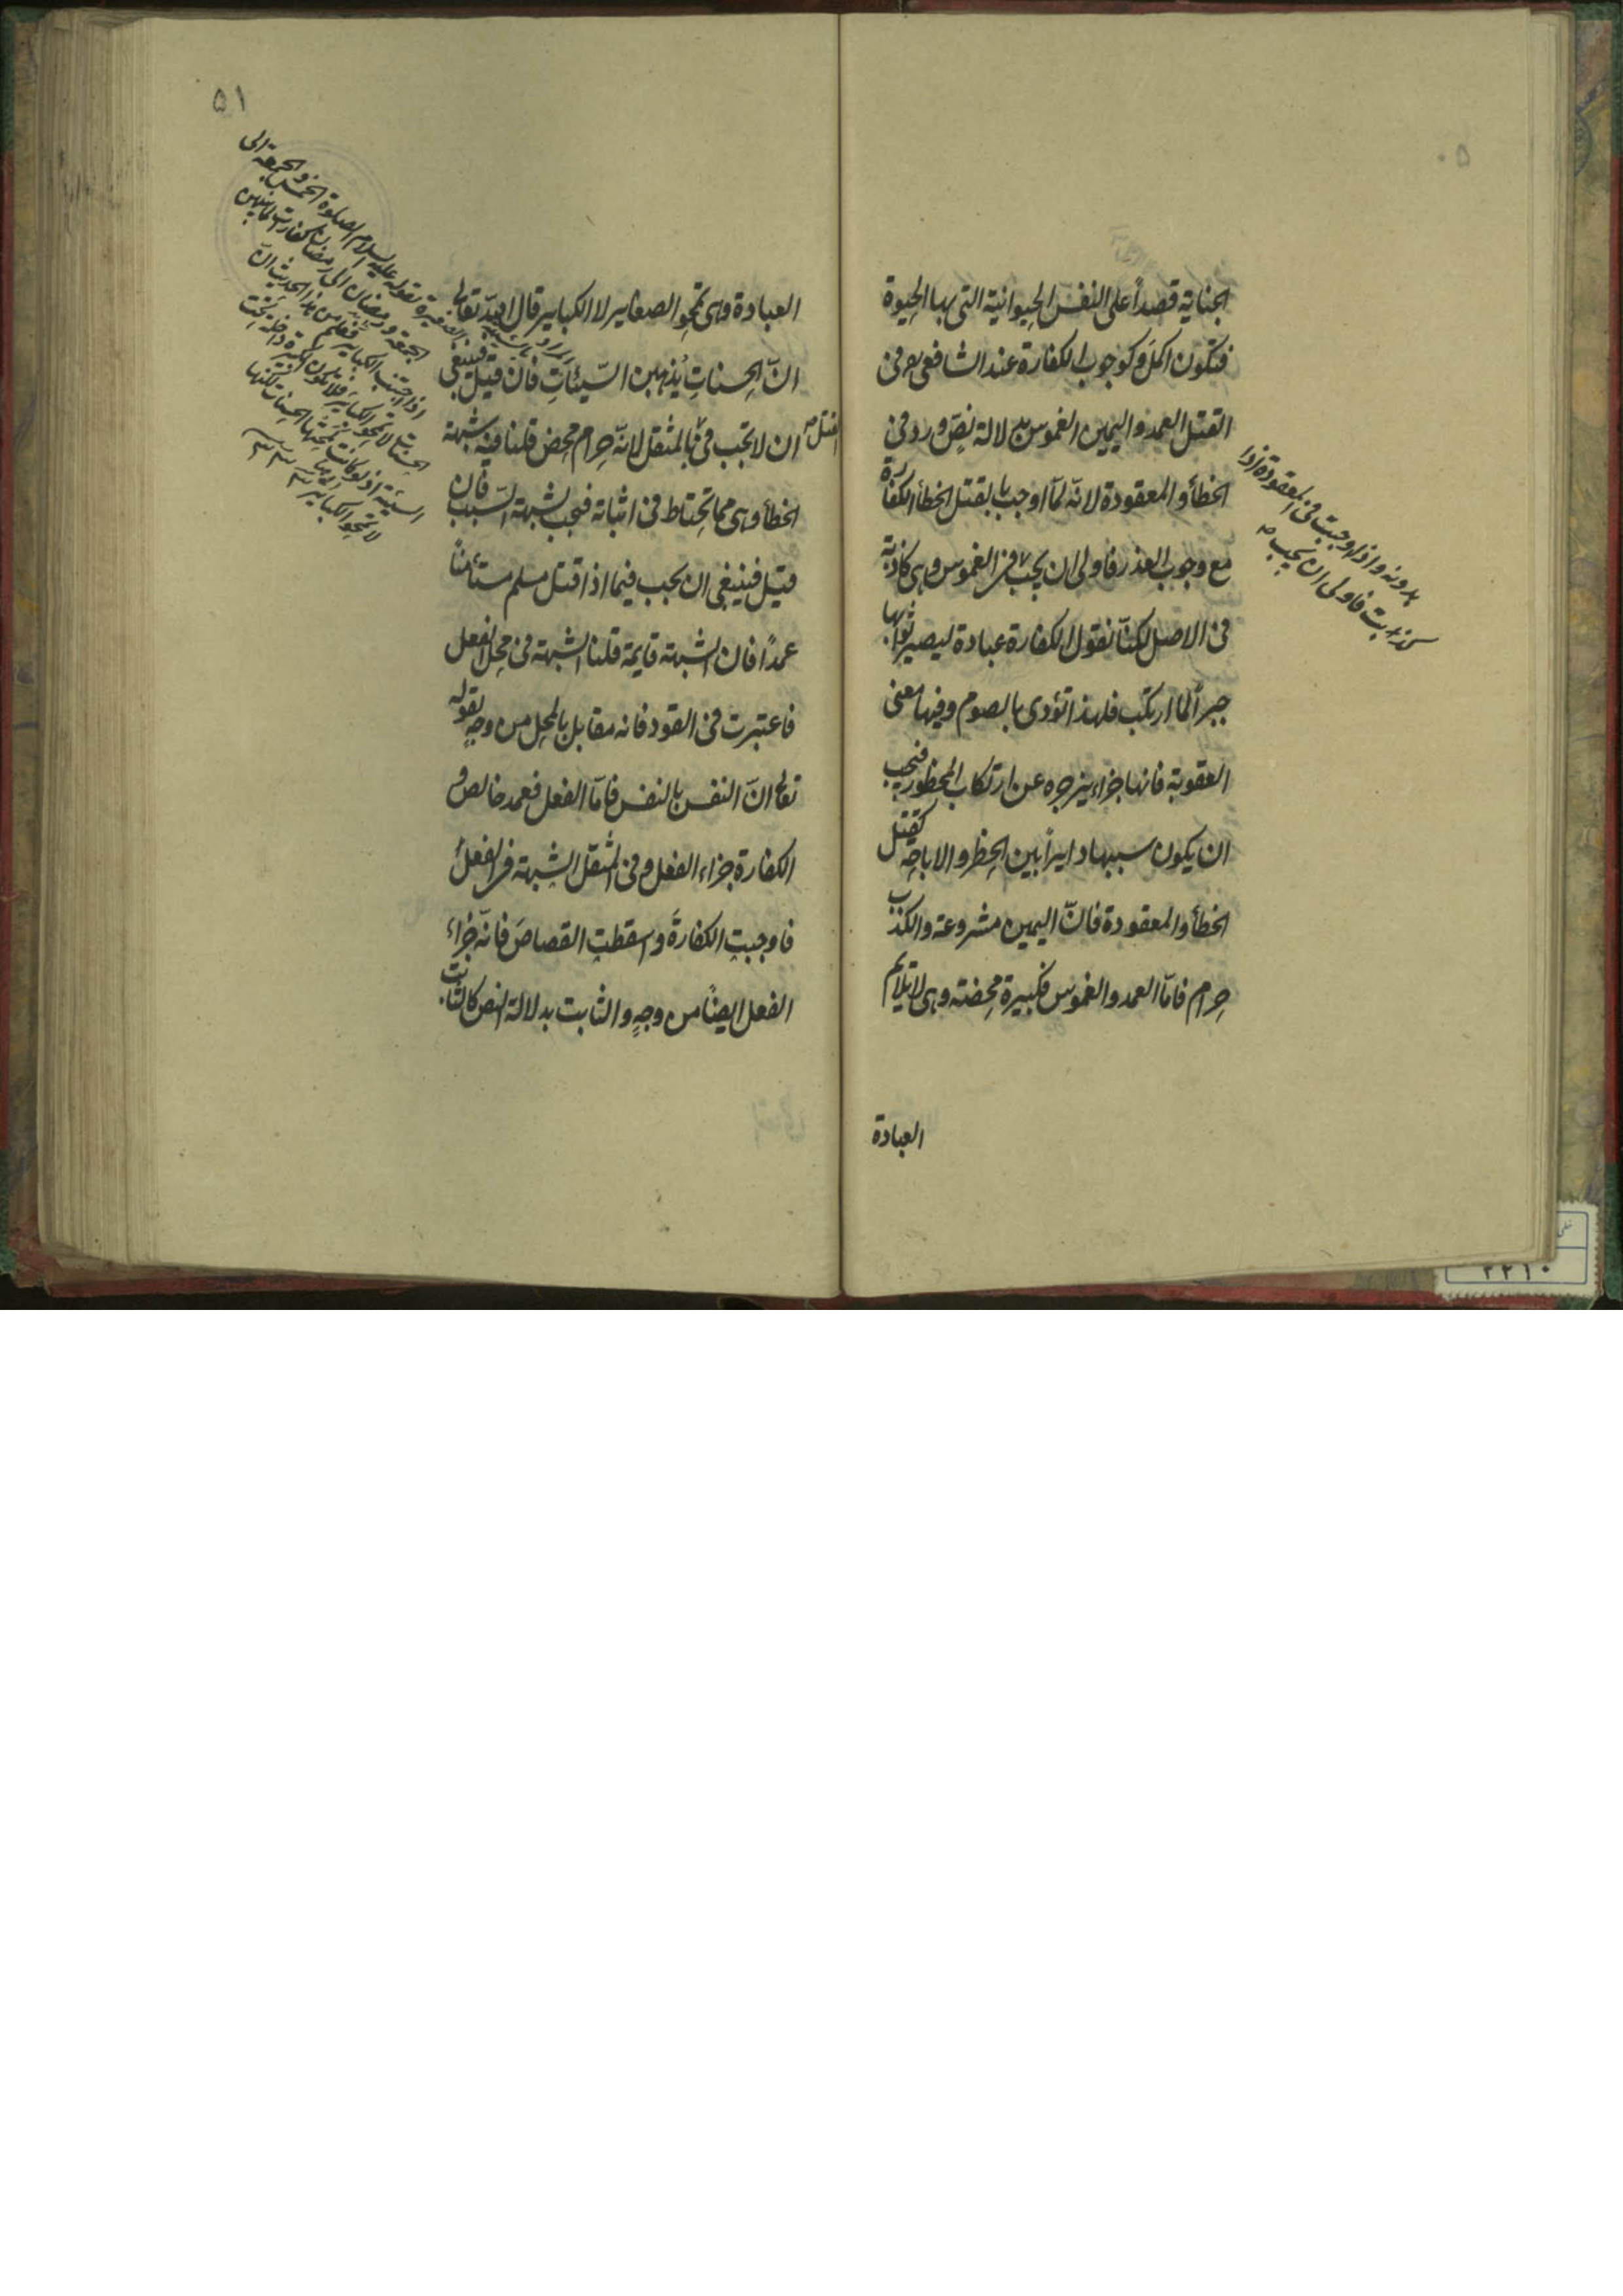 ٥٠
الجناية قصداً على النفس الحيوانية التى بها الحيوة
فتكون اكمل وكوجوب الكفارة عند الشافعى رح فى
القتل العمد واليمين الغموس بدلالة نصّ ورد فى
الخطأ والمعقودة لانّه لمّا اوجب بالقتل الخطأ الكفارة
مع وجوب العذر فاولى ان يجب فى الغموس وهى كاذبة
فى الاصل لكنّا نقول الكفارة عبادة ليصير ثوابها
جبراً لما ارتكب فلهذا تؤدى بالصوم وفيها معنى
العقوبة فانها جزاء يزجره عن ارتكاب المحظور فيجب
ان يكون سببها دايراً بين الحظر والاباحة كقتل
الخطأ والمعقودة فانّ اليمين مشروعة والكذب
حرام فامّا العمد والغموس فكبيرة محضة وهى لا تلايم
العبادة
بدونه واذا وجبت فى المعقودة اذا
كذبت فاولى ان يجب
٥١
العبادة وهى تمحو الصغاير لا الكباير قال الله تعالى
انّ الحسناتِ يُذهبن السّيئاتِ فان قيل فينبغى
ان لا تجب فى القتل بالمثقل لانّه حرام محض قلنا فيه شبهة
الخطأ وهى مما تحتاط فى اثباته فتجب لشبهة السّبب فان
قيل فينبغى ان يجب فيما اذا قتل مسلم مستأمناً
عمداً فان الشبهة قايمة قلنا الشبهة فى محل الفعل
فاعتبرت فى القود فانه مقابل بالمحل من وجهٍ لقوله
تعالى انّ النفس بالنفس فامّا الفعل فعمد خالص و
الكفارة جزاء الفعل وفى المثقل الشبهة فى الفعل
فاوجبتِ الكفارةَ واسقطتِ القصاصَ فانّه جزاء
الفعل ايضاً من وجهٍ والثابت بدلالة النص كالثابت
الصغيرة لقوله عليه السلام الصلوة الخمس والجمعة الى
الجمعة ورمضان الى رمضان كفارات لما بينهن
اذا اجتنب الكباير فعلم من هذا الحديث انّ
لا تمحو الكباير